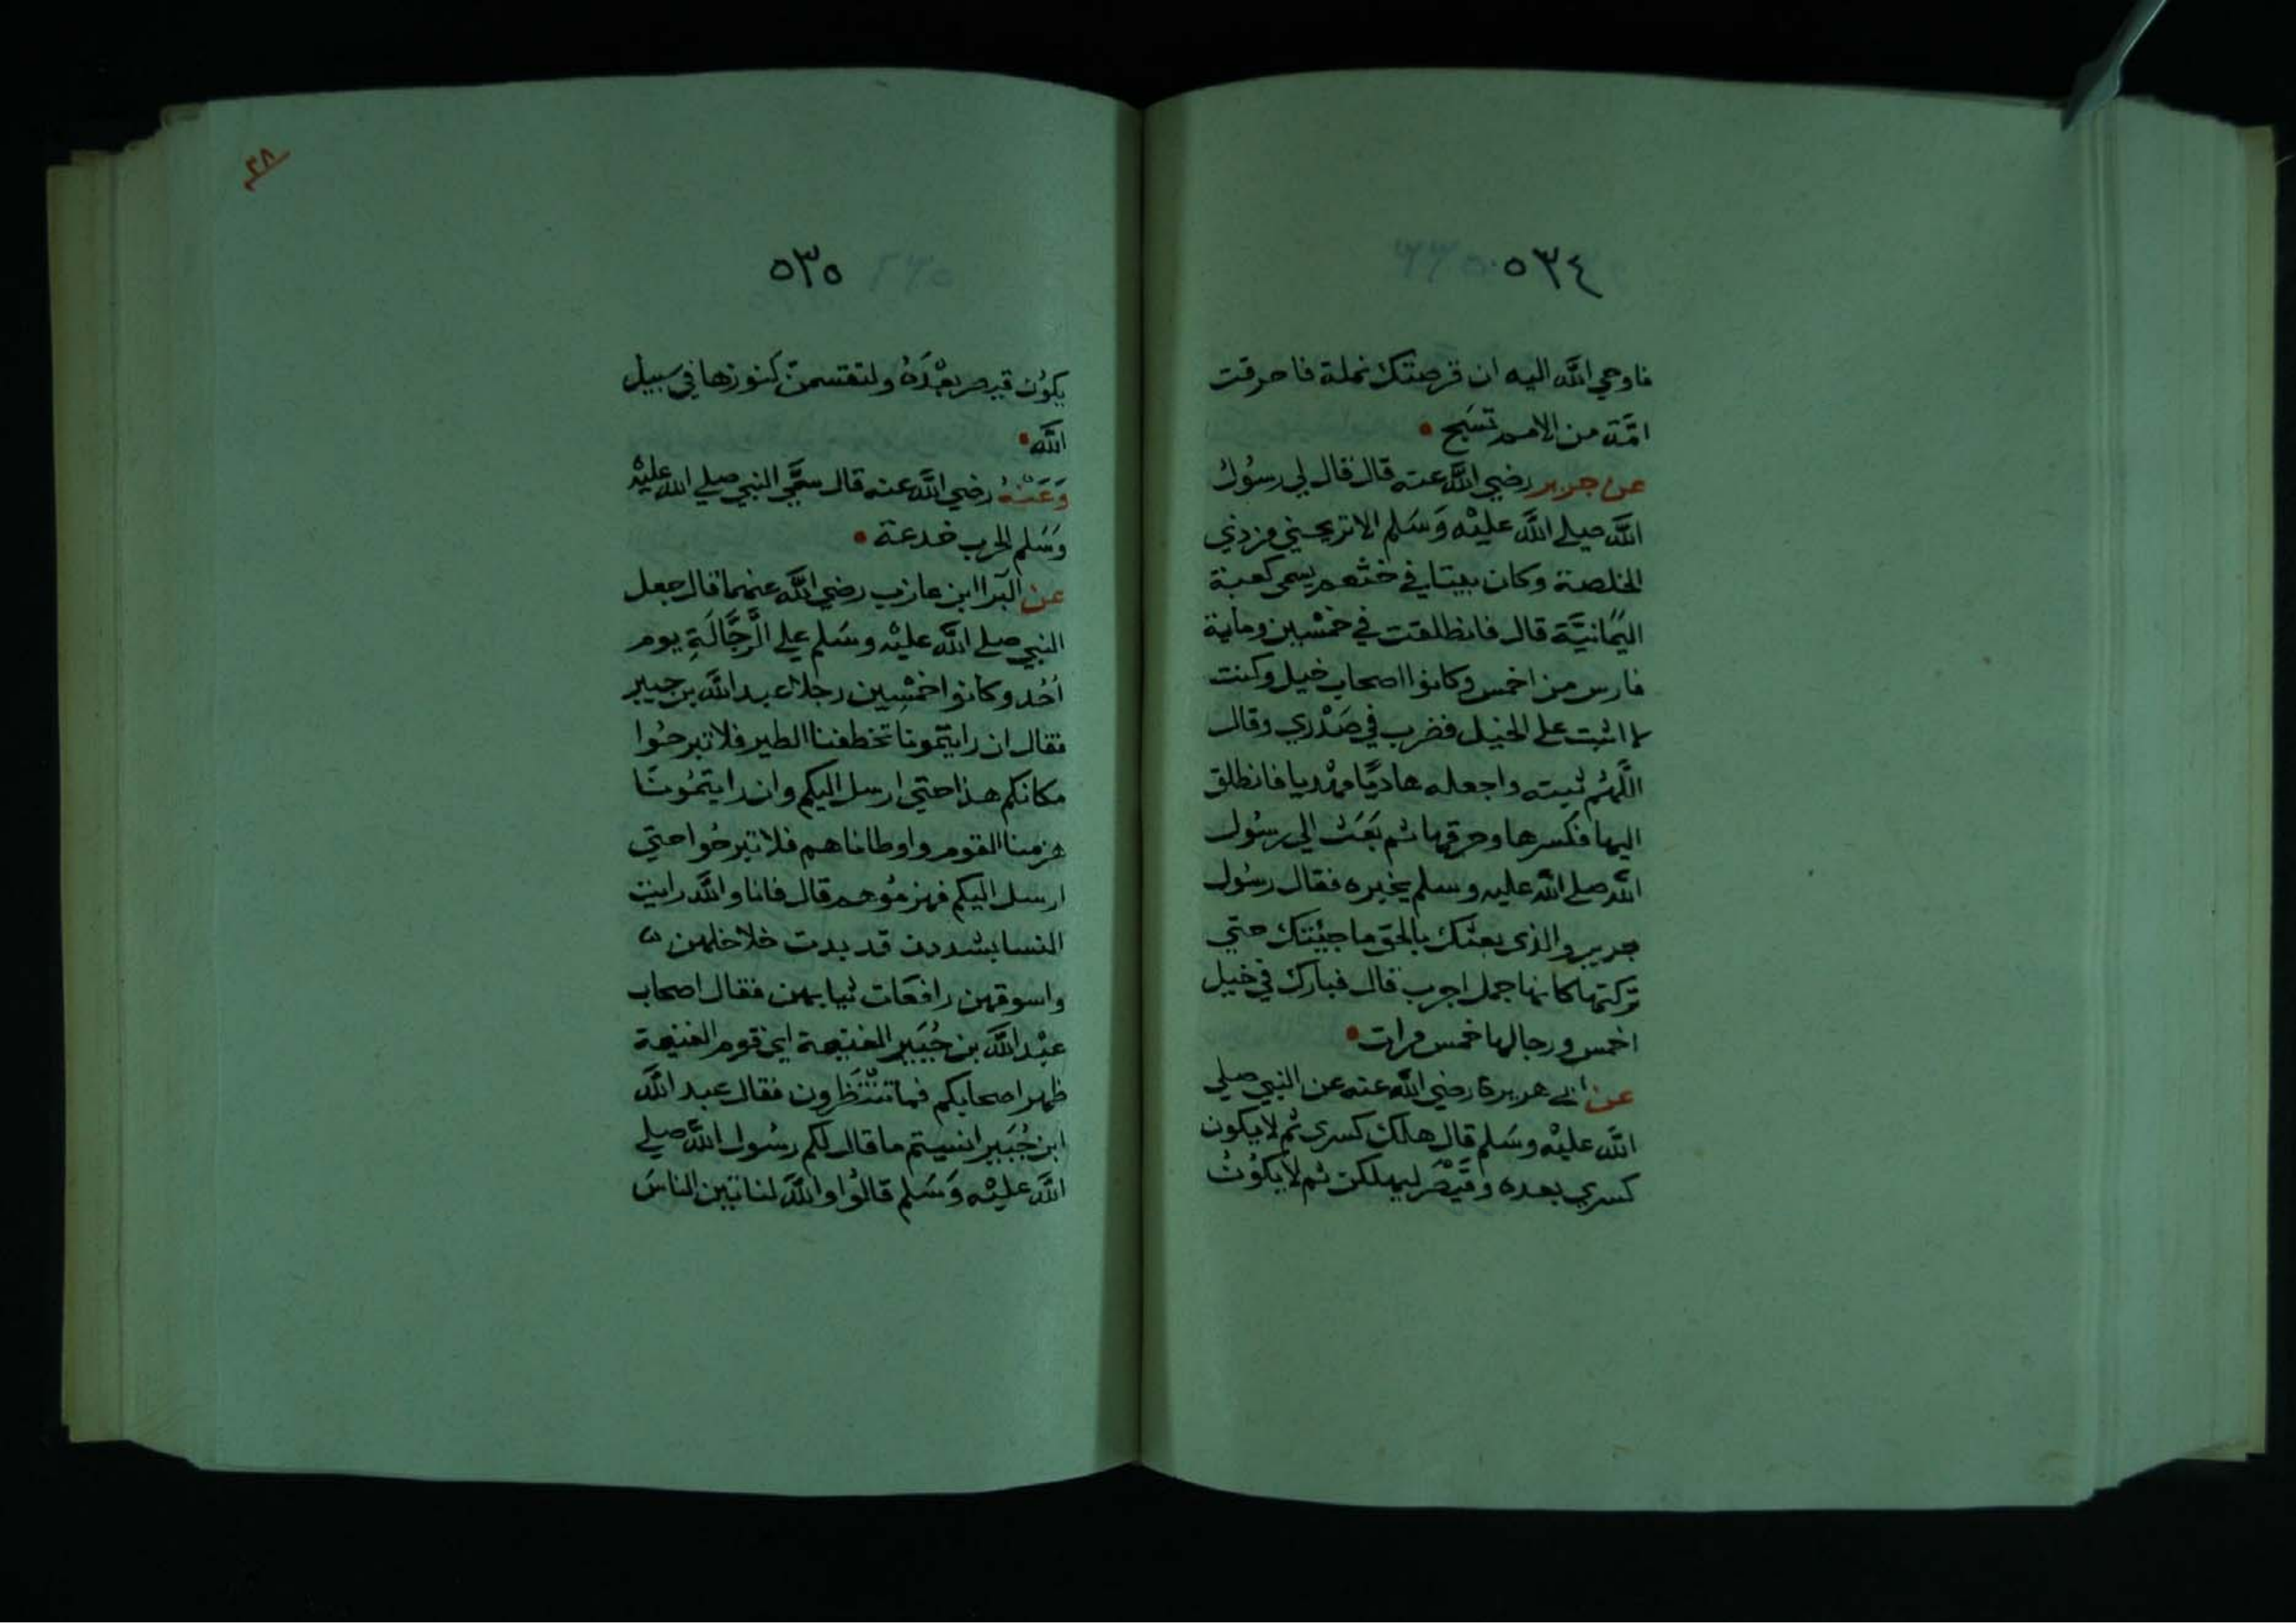 ٥٣٤
فاوحي الله اليه ان قرصتك نملة فاحرقت
امَّة من الامم تسَبح
عن جرير رضي الله عنه قال قال لي رسوُل
الله صلي الله عليْه وَسَلم الا تريحني من ذي
الخلصة وكان بيتا في خثعم يسمي كعبة
اليَمانيَّة قال فانطلقت في خمْسين وماية
فارس من احمس وكانوا اصحاب خيل وكنت
لا اثبت علي الخيل فضرب في صَدْري وقال
اللَّهُم ثبته واجعله هاديًا مهْديا فانطلق
اليها فكسرها وحرقها ثم بَعَث الي رسُول
الله صلي الله عليه وسلم يخبره فقال رسُول
جرير والذي بعثك بالحق ما جيْتك حتي
تركتها كانها جمل اجرب قال فبارك في خيل
احمس ورجالها خمس مرات
عن ابي هريرة رضي الله عنه عن النبي صلي
الله عليْه وسَلم قال هلك كسري ثم لا يكون
كسري بعده وقَيْصَر ليهلكن ثم لا يكوُنُ
٣٨
٥٣٥
يكوُن قيصر بعْدَهُ ولتقتسمنّ كنوزها في سبيل
الله
وَعَنْهُ رضي الله عنه قال سمَّي النبي صلي الله عليْه
وسَلم الحرب خدعة
عن البَرا ابن عازب رضي الله عنهما قال جعل
النبي صلي الله عليْه وسَلم علي الرَّجَّالَةِ يوم
اُحُد وكانوا خمْسِين رجلا عبد الله بن جبير
فقال ان رايتمونا تخطفنا الطير فلا تبرحُوا
مكانكم هذا حتي ارسل اليكم وان رايتمُونَا
هزمنا القوم واوطاناهم فلا تبرحُوا حتي
ارسل اليكم فهزمُوهم قال فانا والله رايت
النسا يشددن قد بدت خلاخلهن
واسوقهن رافعَات ثيابهن فقال اصحاب
عبْد الله بن جُبَيِر الغنيمة اي قوم الغنيمة
ظهر اصحابكم فما تنْتَظرون فقال عبد الله
ابن جُبَير انسيتم ما قال لكم رسُول الله صلي
الله عليْه وَسَلم قالوُا والله لناتين الناسَ